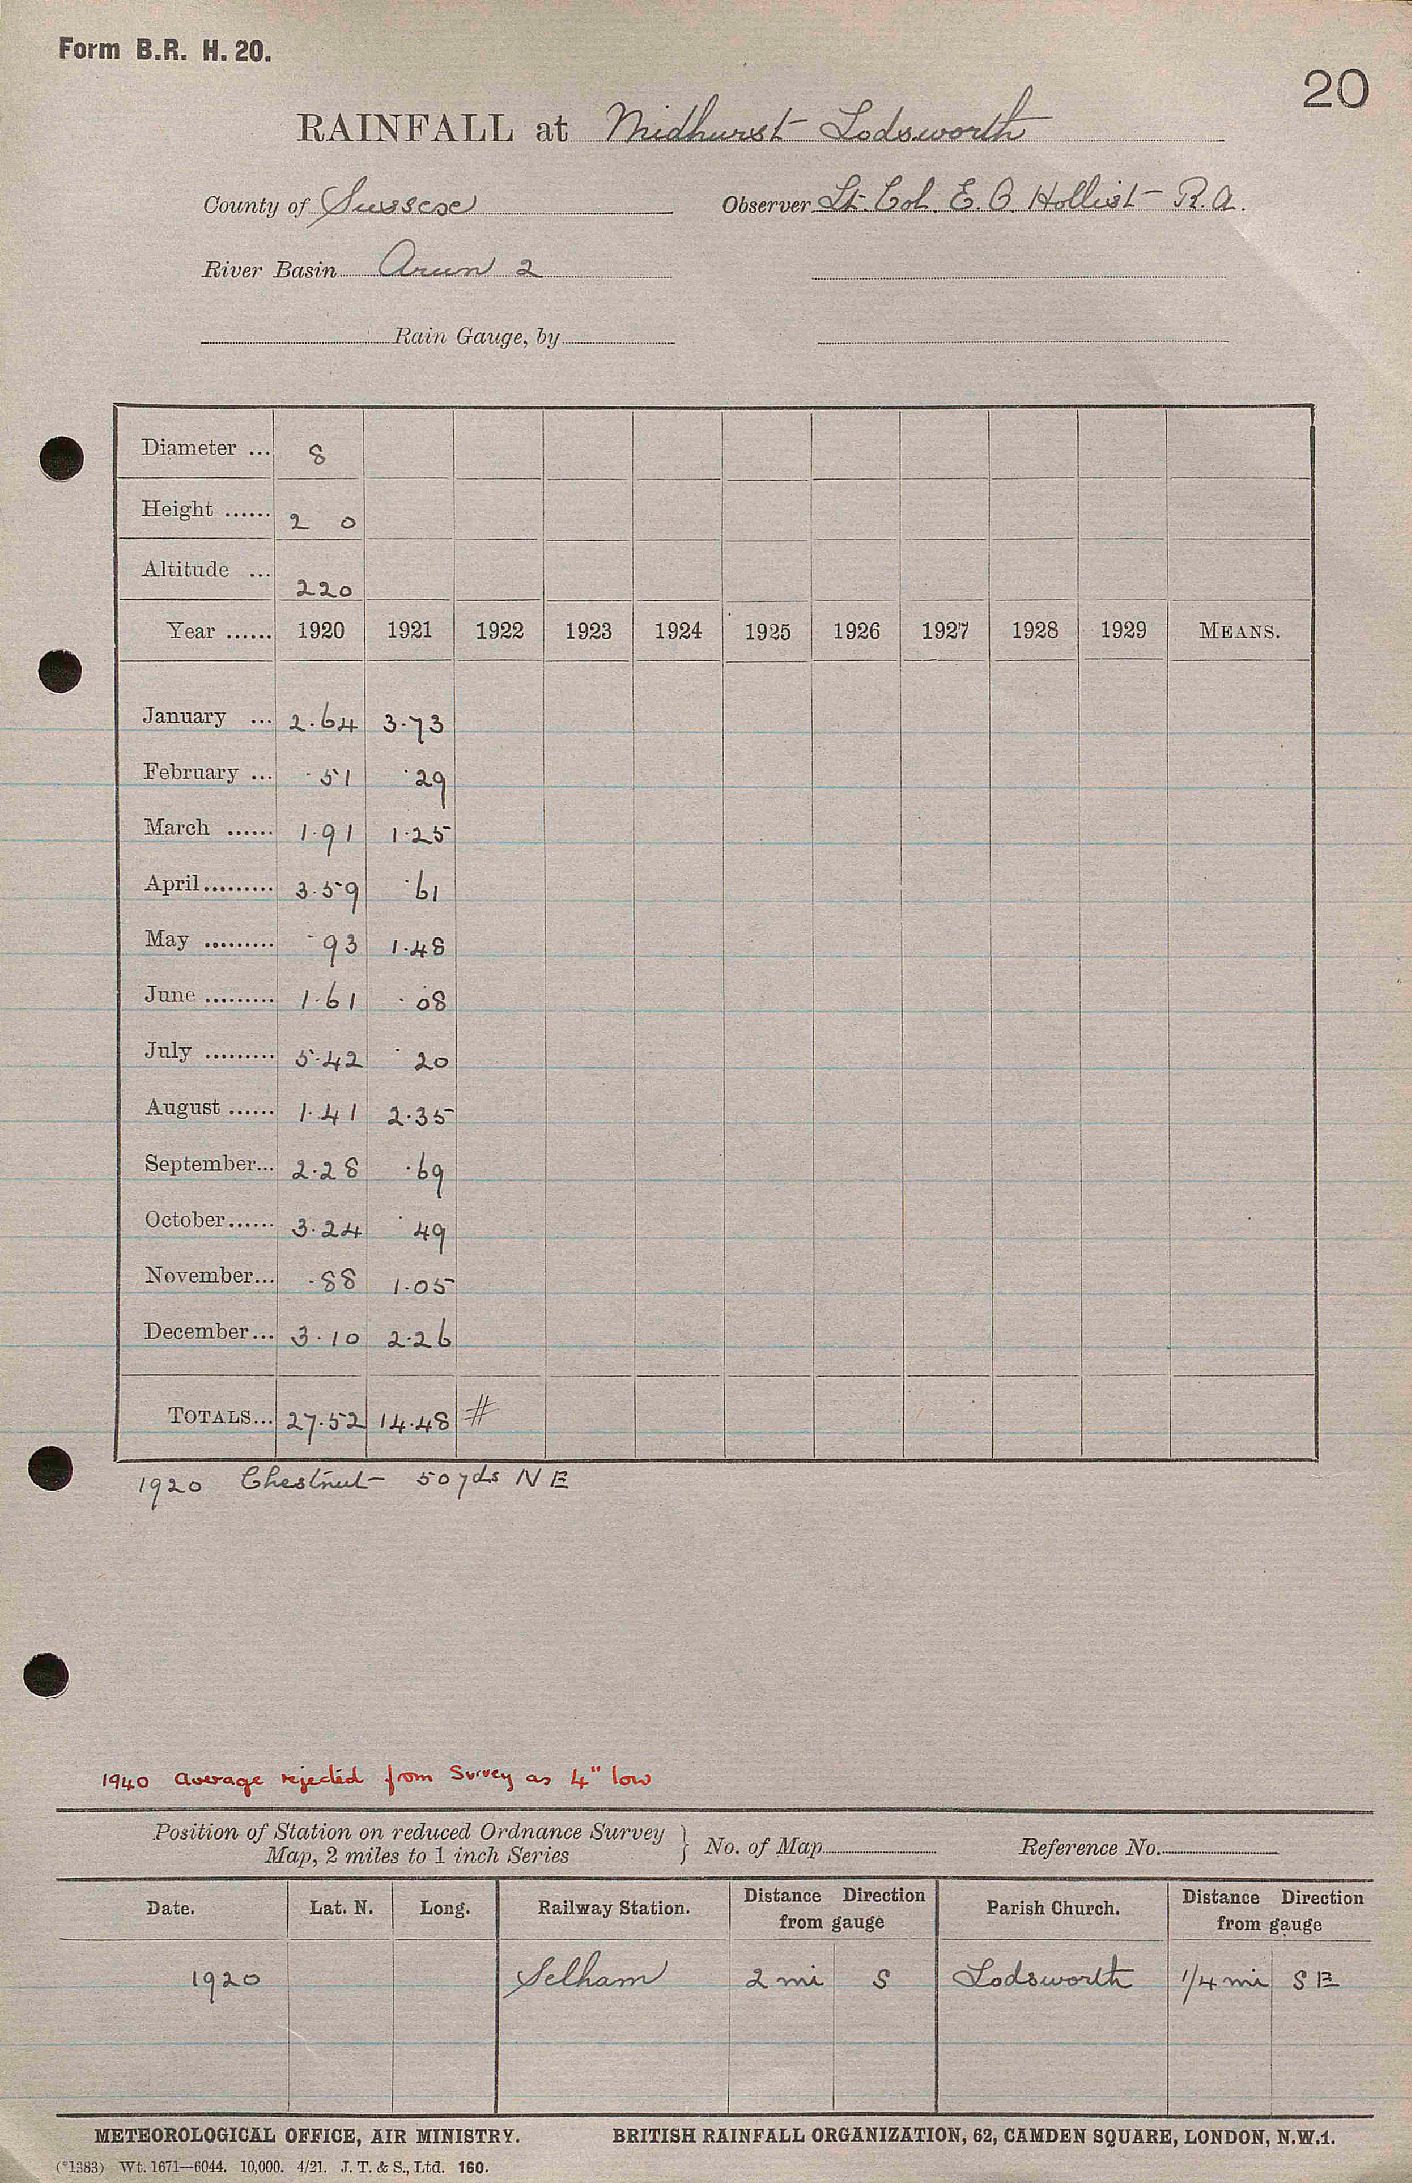 Form B.R. H. 20.
20
RAINFALL at Midhurst Lodsworth
County of Sussex Observer Lt. Col. E. O. Hollist R.A.
River Basin Arun 2
Rain Gauge, by
Diameter ... 8
Height ...... 2 0
Altitude ... 220
Year ...... 1920 1921 1922 1923 1924 1925 1926 1927 1928 1929 MEANS.
January ... 2.64 3.73
February ... .51 .29
March ...... 1.91 1.25
April ......... 3.59 .61
May ......... .93 1.48
June ......... 1.61 .08
July ......... 5.42 .20
August ...... 1.41 2.35
September... 2.28 .69
October...... 3.24 .49
November... .88 1.05
December... 3.10 2.26
TOTALS... 27.52 14.48 #
1920 Chestnut 50 yds N E
1940 Average rejected from Survey as 4" low
Position of Station on reduced Ordnance Survey
Map, 2 miles to 1 inch Series } No. of Map Reference No.
Date. Lat. N. Long. Railway Station. Distance Direction from gauge Parish Church. Distance Direction from gauge
1920 Selham 2 mi S Lodsworth 1/4 mi S E
METEOROLOGICAL OFFICE, AIR MINISTRY. BRITISH RAINFALL ORGANIZATION, 62, CAMDEN SQUARE, LONDON, N.W.1.
(*1383) Wt. 1671—6044. 10,000. 4/21. J. T. & S., Ltd. 160.